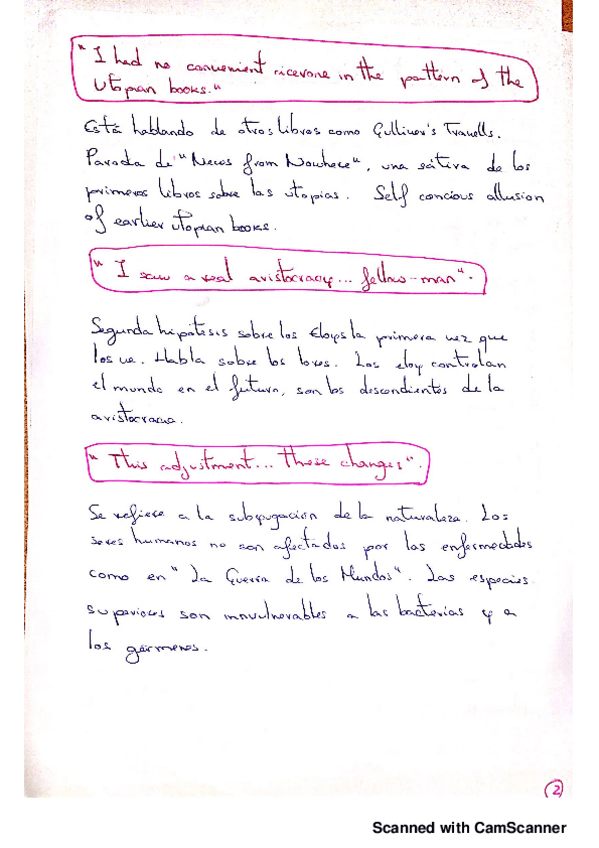 "I had no convenient cicerone in the pattern of the
Utopian books."
Está hablando de otros libros como Gulliver's Travells.
Parodia de "News from Nowhere", una sátira de los
primeros libros sobre las utopias. Self concious allusion
of earlier utopian books.
"I saw a real aristocracy... fellow-man".
Segunda hipótesis sobre los Eloys la primera vez que
los ve. Habla sobre los Los eloy controlan
el mundo en el futuro, son los descendientes de la
aristocracia.
"This adjustment... these changes".
Se refiere a la subyugación de la naturaleza. Los
seres humanos no son afectados por las enfermedades
como en "La Guerra de los Mundos". Las especies
superiores son innvulnerables a las bacterias y a
los gérmenes.
2
Scanned with CamScanner